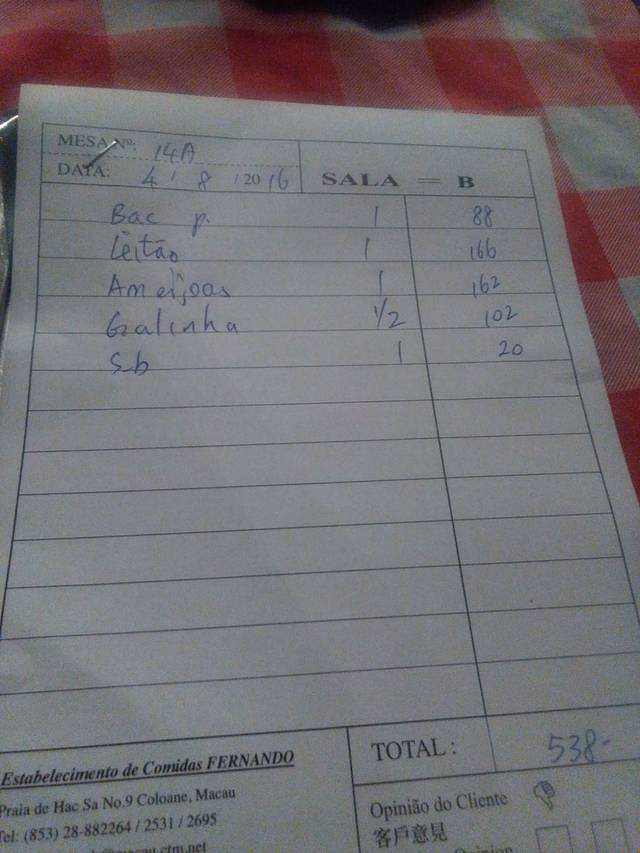 MESA Nº: 14A
DATA: 4 / 8 / 2016
SALA = B
Bac p. 1 88
Leitão 1 166
Ameijoas 1 162
Galinha 1/2 102
Sb 1 20
TOTAL : 538-
Estabelecimento de Comidas FERNANDO
Praia de Hac Sa No.9 Coloane, Macau
Tel: (853) 28-882264 / 2531 / 2695
Opinião do Cliente
客戶意見